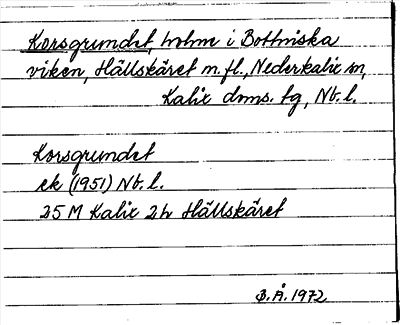 Korsgrundet, holme i Bottniska
viken, Hällskäret m. fl., Nederkalix sn,
Kalix doms. tg, Nb. l.
Korsgrundet
ek (1951) Nb. l.
25 M Kalix 2 h Hällskäret
B. Å. 1972